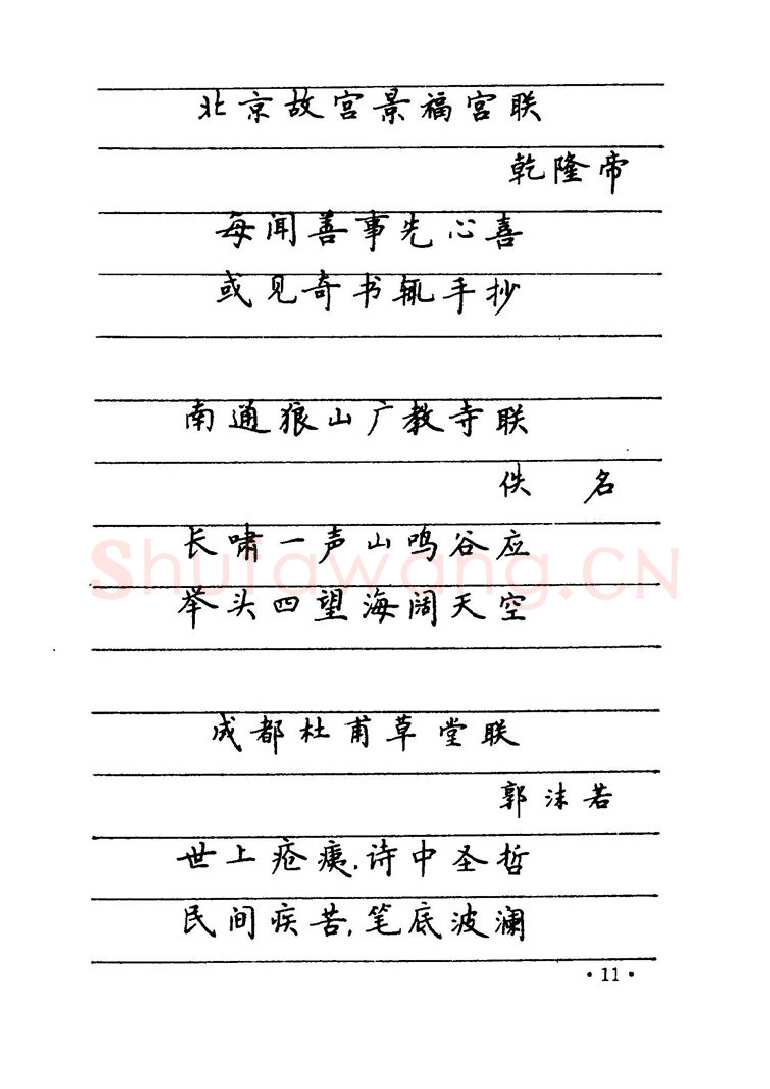 北京故宫景福宫联
乾隆帝
每闻善事先心喜
或见奇书辄手抄
南通狼山广教寺联
佚 名
长啸一声山鸣谷应
举头四望海阔天空
Shufawang.CN
成都杜甫草堂联
郭沫若
世上疮痍,诗中圣哲
民间疾苦,笔底波澜
·11·